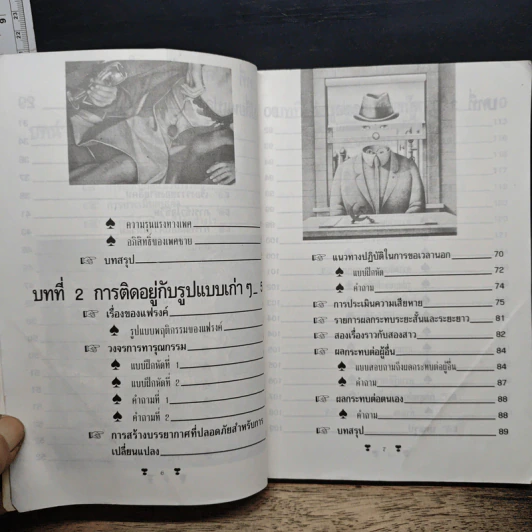 ความรุนแรงทางเพศ
อภิสิทธิ์ของเพศชาย
บทสรุป
บทที่ 2 การติดอยู่กับรูปแบบเก่า ๆ
เรื่องของแฟรงค์
รูปแบบพฤติกรรมของแฟรงค์
วงจรการทารุณกรรม
แบบฝึกหัดที่ 1
แบบฝึกหัดที่ 2
คำถามที่ 1
คำถามที่ 2
การสร้างบรรยากาศที่ปลอดภัยสำหรับการ
เปลี่ยนแปลง
6
แนวทางปฏิบัติในการขอเวลานอก 70
แบบฝึกหัด 72
คำถาม 74
การประเมินความเสียหาย 75
รายการผลกระทบระยะสั้นและระยะยาว 81
สองเรื่องราวกับสองสาว 82
ผลกระทบต่อผู้อื่น 84
แบบสอบถามถึงผลกระทบต่อผู้อื่น 84
คำถาม 87
ผลกระทบต่อตนเอง 88
คำถาม 88
บทสรุป 89
7